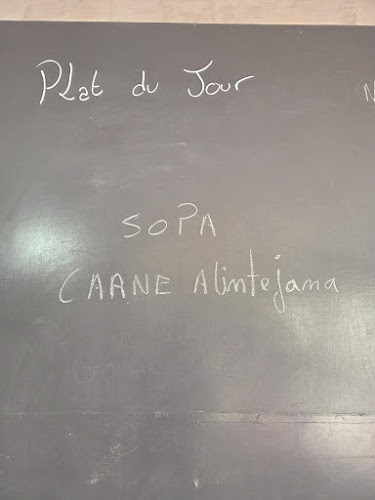 Plat du Jour
N
SOPA
CARNE Alintejana